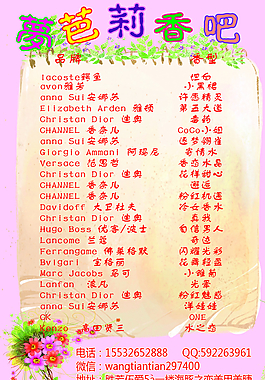 夢芭莉香吧
品牌 香型
lacoste鳄鱼
avon雅芳 小黑裙
anna Sui安娜苏 许愿精灵
Elizabeth Arden 雅顿 第五大道
Christan Dior 迪奥 毒药
CHANNEL 香奈儿 CoCo小姐
anna Sui安娜苏 逐梦翎雀
Giorgio Ammani 阿玛尼 寄情水
Versace 范思哲 香恋水晶
Christan Dior 迪奥 花样甜心
CHANNEL 香奈儿 邂逅
CHANNEL 香奈儿 粉红机遇
Davidoff 大卫杜夫 冷水香水
Christan Dior 迪奥 真我
Hugo Boss 优客/波士 自信男人
Lancome 兰蔻 奇迹
Ferrangame 佛莱格默 闪耀光彩
Bvlgari 宝格丽 花舞轻盈
Marc Jacobs 马可 小雏菊
Lanfan 浪凡 光晕
Christan Dior 迪奥 粉红魅惑
anna Sui安娜苏 洋娃娃
CK ONE
Kenzo 高田贤三 水之恋
电话：15532652888 QQ:592263961
微信：wangtiantian297400